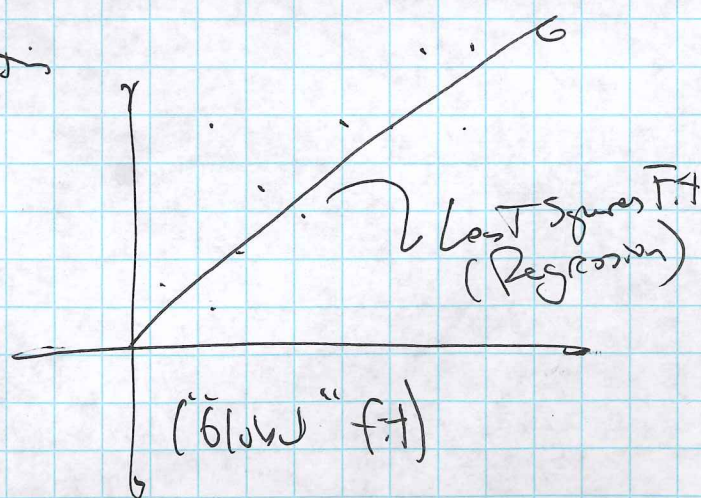 Least Squares Fit
(Regression)
("Global" fit)